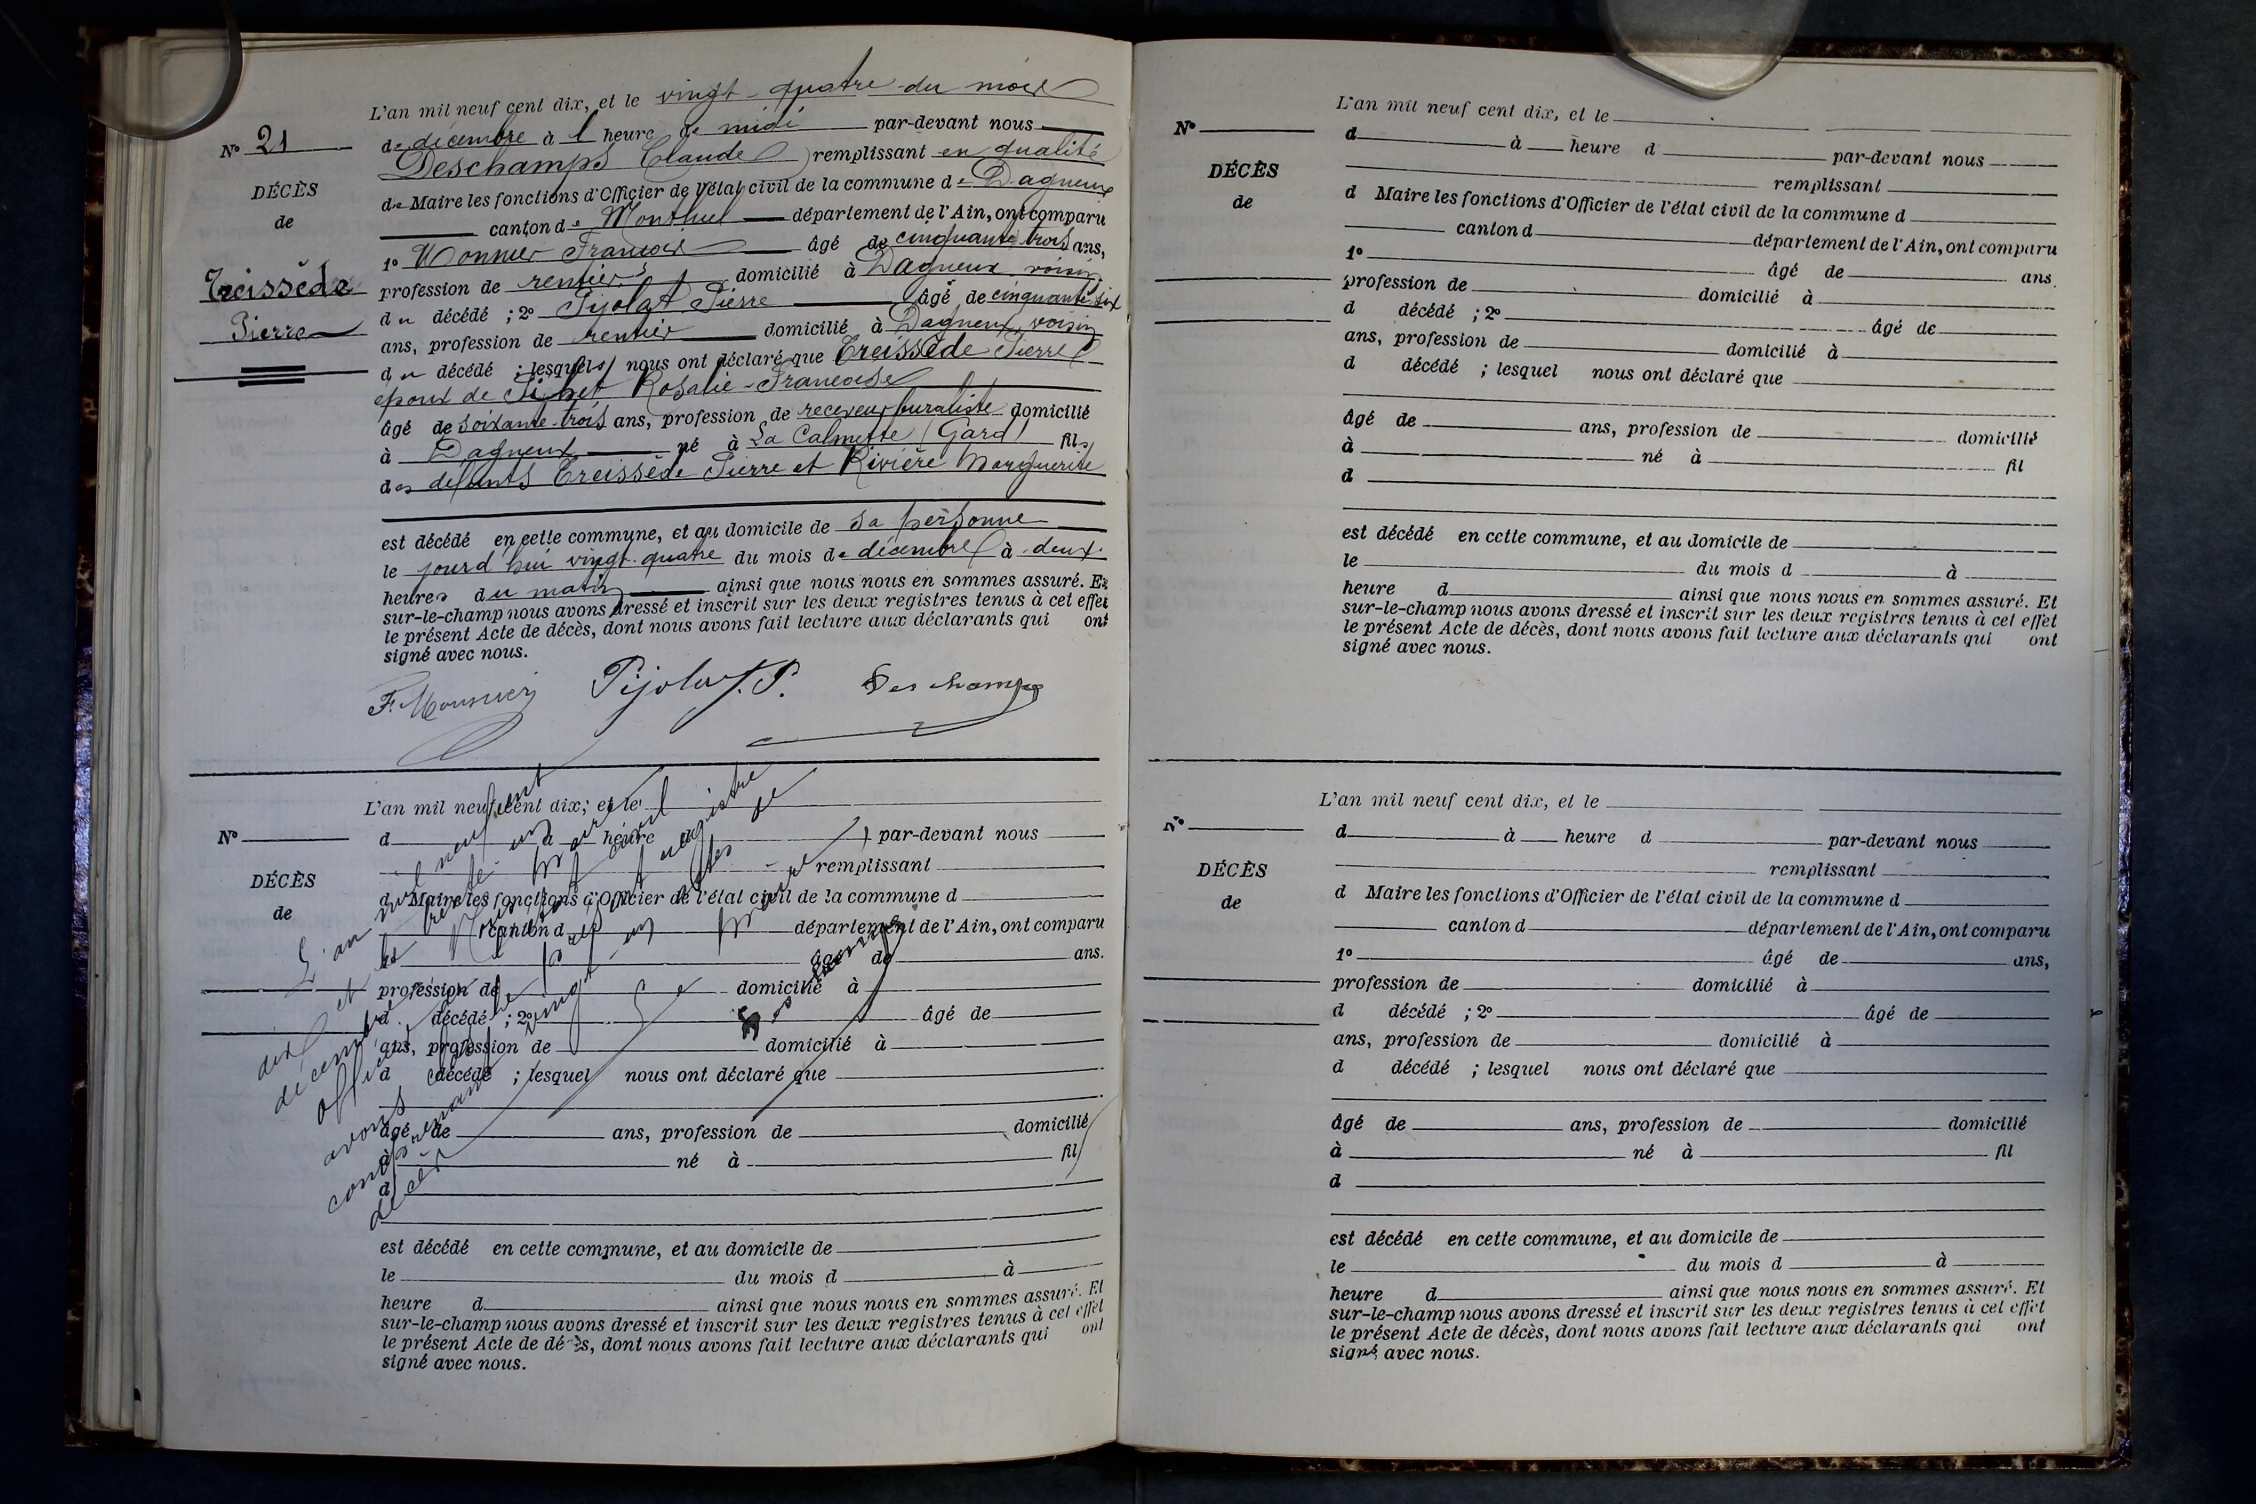 L'an mil neuf cent dix, et le vingt-quatre du mois
N° 21
de décembre à 1 heure de midi par-devant nous
Deschamps Claude remplissant en qualité
DÉCÈS
de Maire les fonctions d'Officier de l'état civil de la commune de Dagneux
de
canton de Montluel département de l'Ain, ont comparu
1° Monnier François âgé de cinquante trois ans,
Treissède
profession de rentier domicilié à Dagneux voisin
Pierre
du décédé ; 2° Pijolat Pierre âgé de cinquante six
ans, profession de rentier domicilié à Dagneux, voisin
du décédé ; lesquels nous ont déclaré que Treissède Pierre
époux de Rosalie-Françoise
âgé de soixante-trois ans, profession de receveur buraliste domicilié
à Dagneux né à La Calmette (Gard) fils
des défunts Treissède Pierre et Rivière Marguerite
est décédé en cette commune, et au domicile de sa personne
le jourd'hui vingt-quatre du mois de décembre à deux
heures du matin ainsi que nous nous en sommes assuré. Et
sur-le-champ nous avons dressé et inscrit sur les deux registres tenus à cet effet
le présent Acte de décès, dont nous avons fait lecture aux déclarants qui ont
signé avec nous.
F. Monnier Pijolat P. Deschamps
L'an mil neuf cent dix, et le
N°
d à heure d par-devant nous
remplissant
DÉCÈS
d Maire les fonctions d'Officier de l'état civil de la commune d
de
canton d département de l'Ain, ont comparu
1° âgé de ans.
profession de domicilié à
d décédé ; 2° âgé de
ans, profession de domicilié à
d décédé ; lesquel nous ont déclaré que
âgé de ans, profession de domicilié
à né à fil
d
est décédé en cette commune, et au domicile de
le du mois d à
heure d ainsi que nous nous en sommes assuré. Et
sur-le-champ nous avons dressé et inscrit sur les deux registres tenus à cet effet
le présent Acte de décès, dont nous avons fait lecture aux déclarants qui ont
signé avec nous.
L'an mil neuf cent
dix et le trente-un
décembre Nous Maire
officier de l'état civil
avons clos le présent registre
contenant vingt-un actes de
décès
Le Maire
Deschamps
L'an mil neuf cent dix, et le
N°
d à heure d par-devant nous
remplissant
DÉCÈS
d Maire les fonctions d'Officier de l'état civil de la commune d
de
canton d département de l'Ain, ont comparu
1° âgé de ans.
profession de domicilié à
d décédé ; 2° âgé de
ans, profession de domicilié à
d décédé ; lesquel nous ont déclaré que
âgé de ans, profession de domicilié
à né à fil
d
est décédé en cette commune, et au domicile de
le du mois d à
heure d ainsi que nous nous en sommes assuré. Et
sur-le-champ nous avons dressé et inscrit sur les deux registres tenus à cet effet
le présent Acte de décès, dont nous avons fait lecture aux déclarants qui ont
signé avec nous.
L'an mil neuf cent dix, et le
N°
d à heure d par-devant nous
remplissant
DÉCÈS
d Maire les fonctions d'Officier de l'état civil de la commune d
de
canton d département de l'Ain, ont comparu
1° âgé de ans,
profession de domicilié à
d décédé ; 2° âgé de
ans, profession de domicilié à
d décédé ; lesquel nous ont déclaré que
âgé de ans, profession de domicilié
à né à fil
d
est décédé en cette commune, et au domicile de
le du mois d à
heure d ainsi que nous nous en sommes assuré. Et
sur-le-champ nous avons dressé et inscrit sur les deux registres tenus à cet effet
le présent Acte de décès, dont nous avons fait lecture aux déclarants qui ont
signé avec nous.